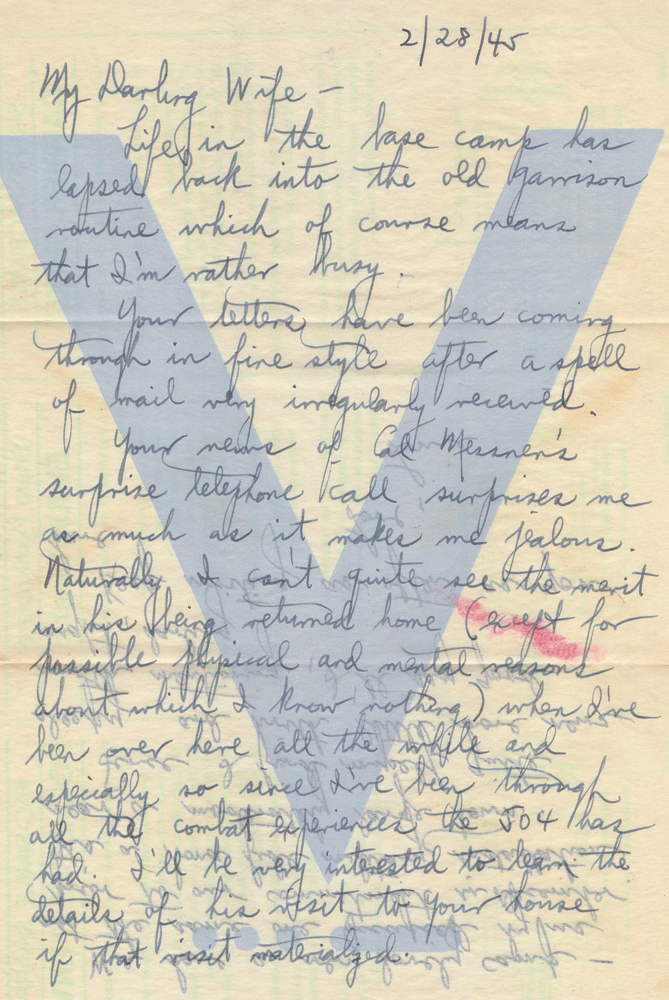 2/28/45
My Darling Wife —
Life in the base camp has
lapsed back into the old garrison
routine which of course means
that I'm rather busy.
Your letters have been coming
through in fine style after a spell
of mail very irregularly received.
Your news of Cal Messner's
surprise telephone call surprises me
as much as it makes me jealous.
Naturally I can't quite see the merit
in his being returned home (except for
possible physical and mental reasons
about which I know nothing) when I've
been over here all the while and
especially so since I've been through
all the combat experiences the 504 has
had. I'll be very interested to learn the
details of his visit to your house
if that visit materialized.